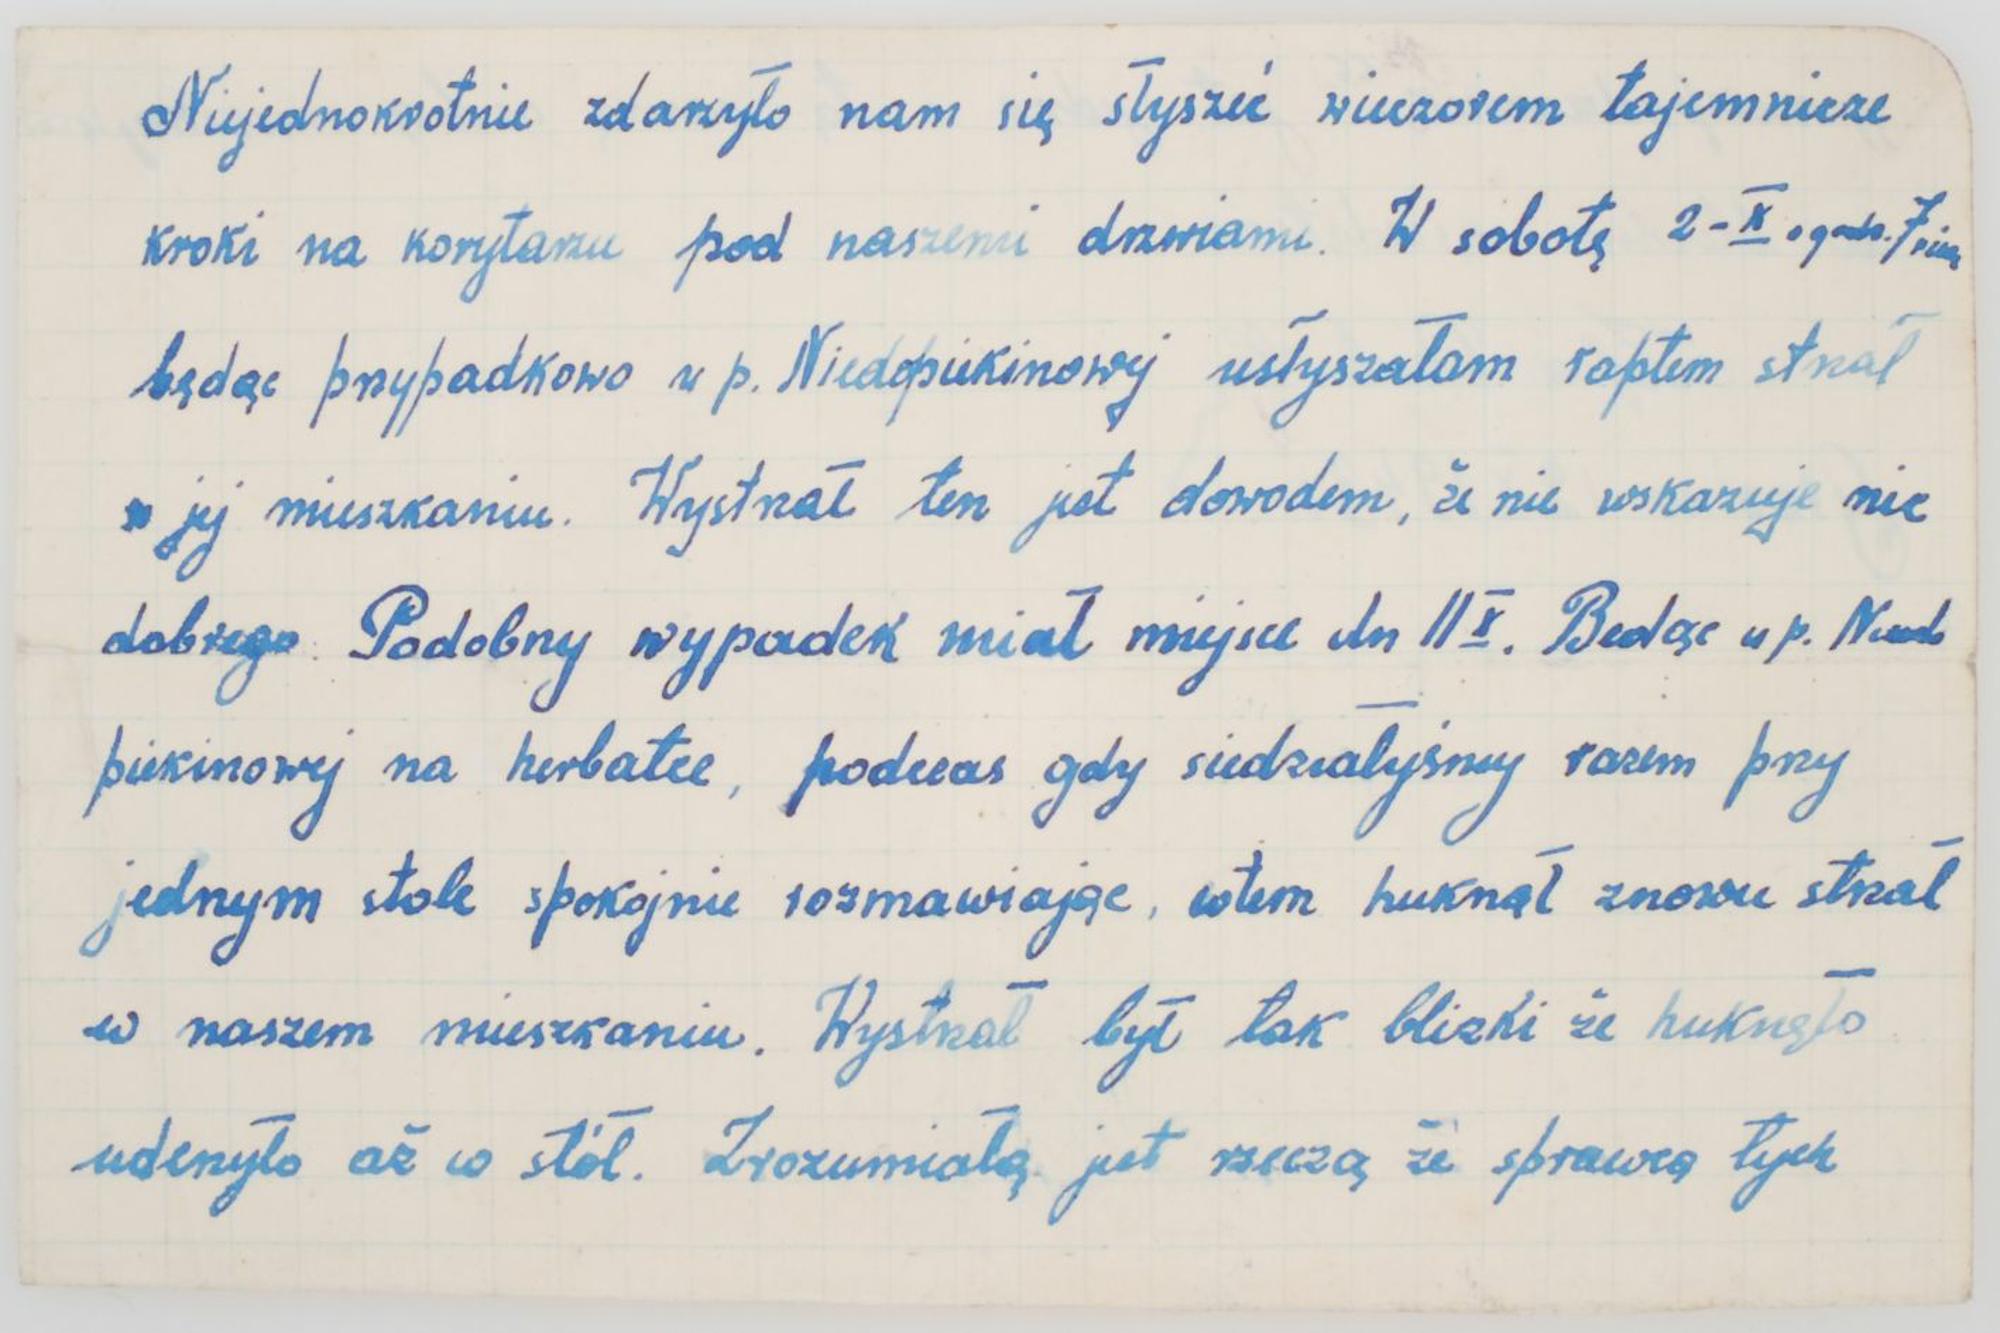 Niejednokrotnie zdarzyło nam się słyszeć wieczorem tajemnicze
kroki na korytarzu pod naszemi drzwiami. W sobotę 2-X o godz. 7
będąc przypadkowo u p. Niedopiekinowej usłyszałam raptem strzał
w jej mieszkaniu. Wystrzał ten jest dowodem, że nie wskazuje nic
dobrego. Podobny wypadek miał miejsce dn 11 X. Bedąc u p. Niedo
piekinowej na herbatce, podczas gdy siedziałyśmy razem przy
jednym stole spokojnie rozmawiając, wtem huknął znowu strzał
w naszem mieszkaniu. Wystrzał był tak blizki że huknęło
uderzyło aż w stół. Zrozumiałą jest rzeczą że sprawcą tych